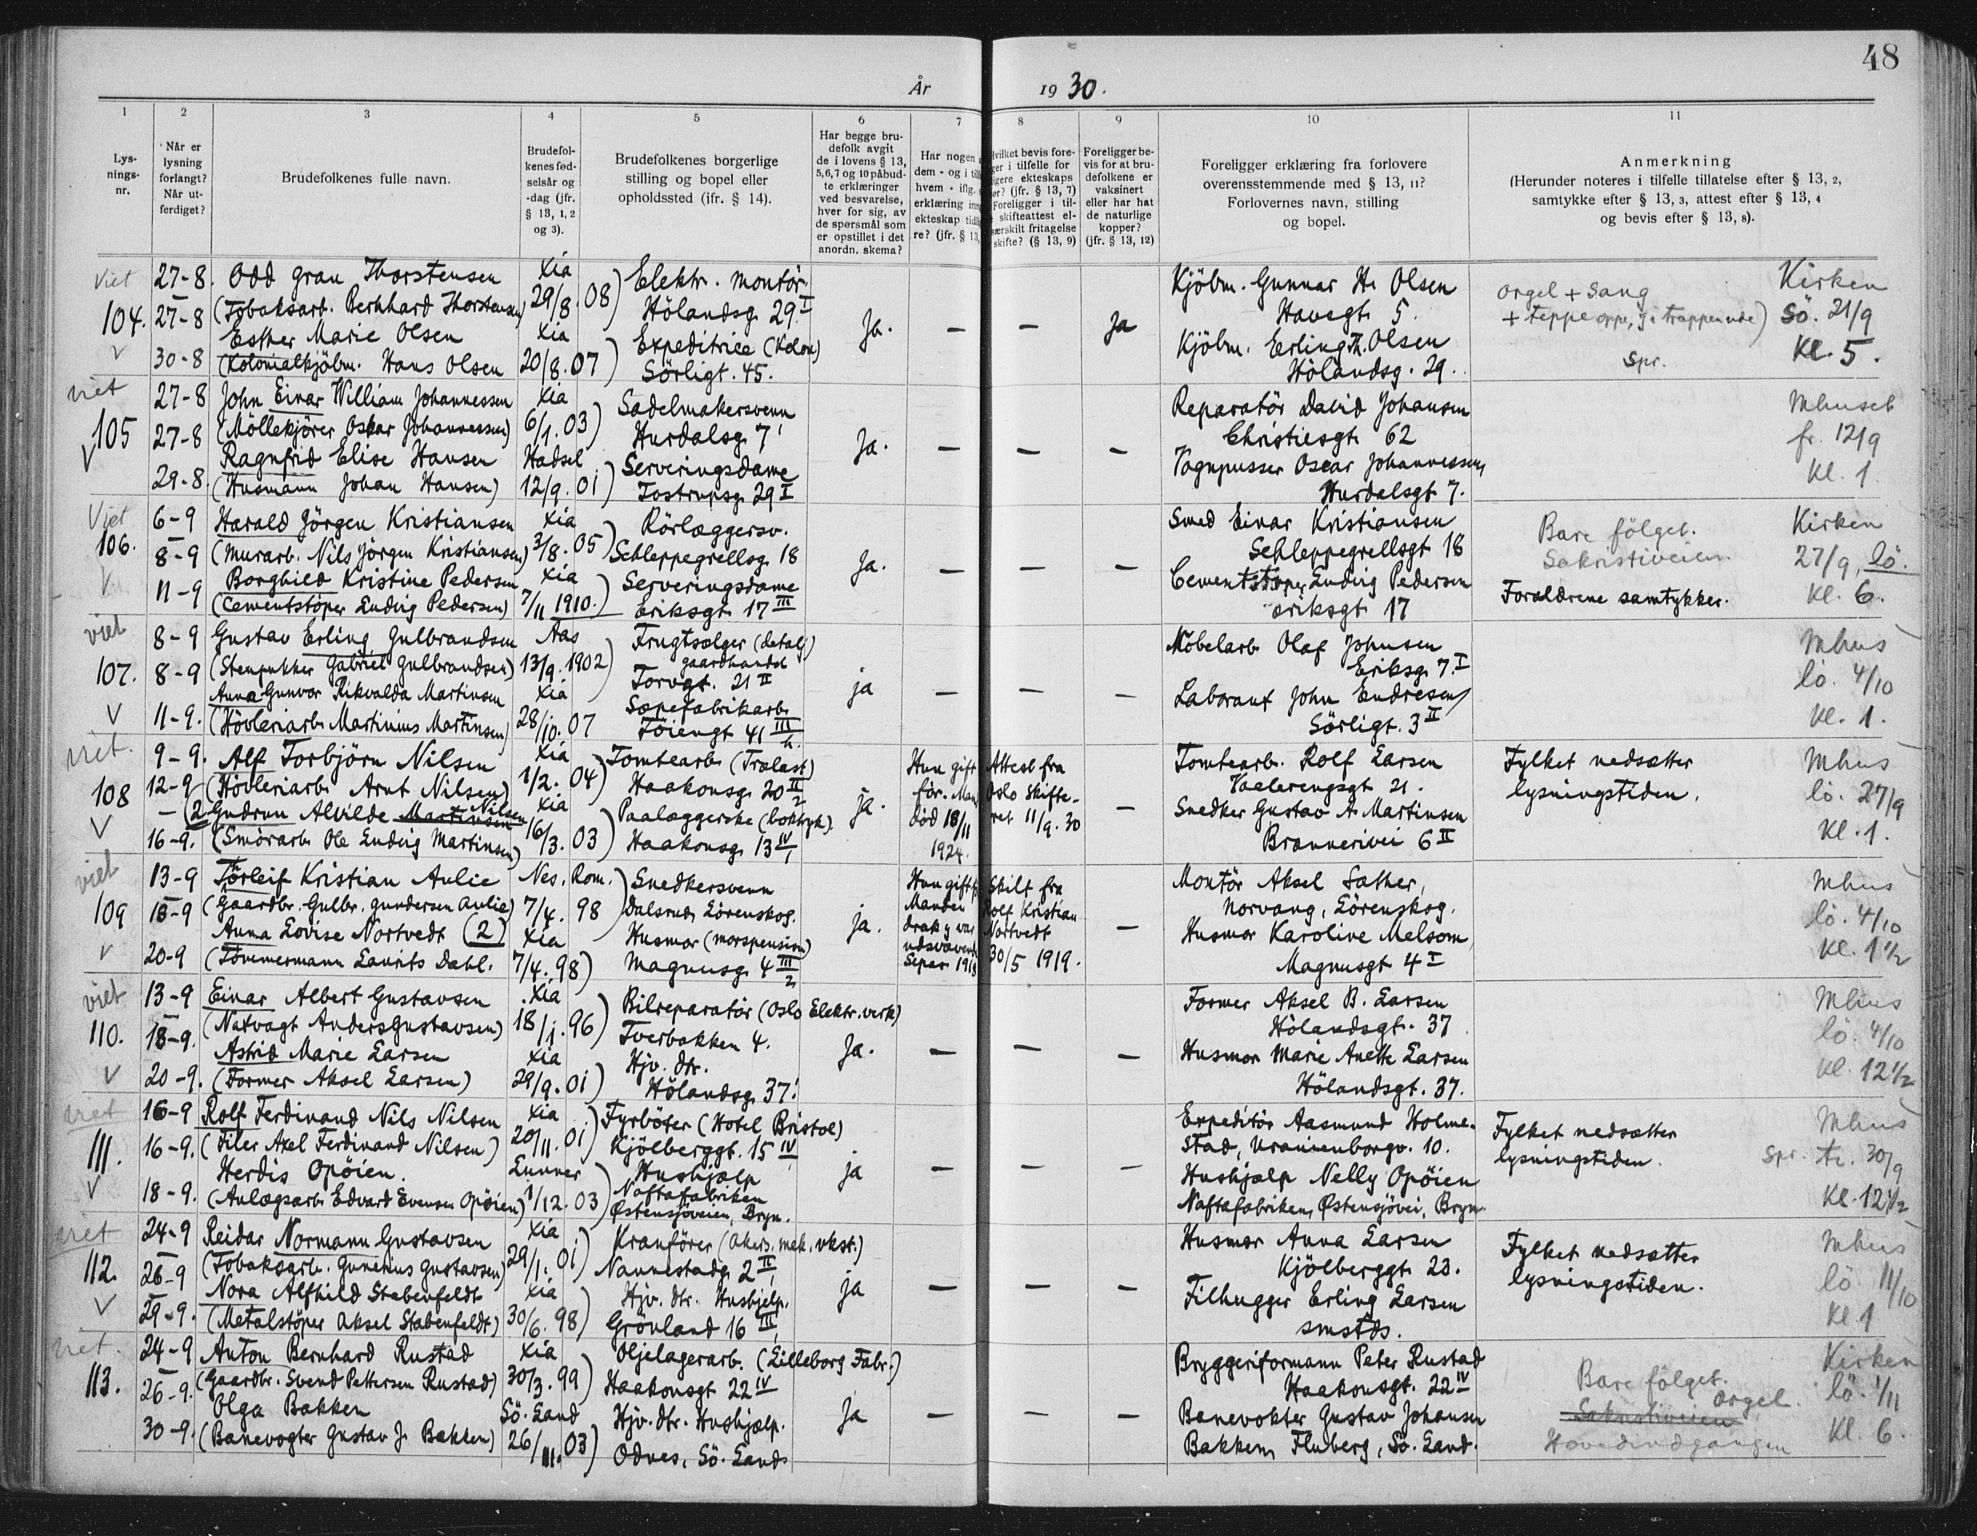 48
År 1930.
1
2
3
4
5
6
7
8
9
10
11
Lys-
nings-
nr.
Når er
lysning
forlangt?
Når ut-
ferdiget?
Brudefolkenes fulle navn.
Brudefol-
kenes fød-
selsår og
-dag (jfr.
§ 13, 1, 2
og 3).
Brudefolkenes borgerlige
stilling og bopel eller
opholdssted (ifr. § 14).
Har begge bru-
defolk avgit
de i lovens § 13,
5, 6, 7 og 10 påbud-
te erklæringer
ved besvarelse,
hver for sig, av
de spørsmål som
er opstillet i det
anordn. skema?
Har nogen
dem - og i
hvem - iflg.
erklæring
ekteskap
re? (jfr. § 13,
Hvilket bevis fore-
ger i tilfelle for
ligere ekteskaps
er? (jfr. § 13, 7)
Foreligger i til-
skifteattest el-
særskilt fritagelse
skifte? (§ 13, 9)
Foreligger be-
vis for at bru-
defolkene er
vaksinert
eller har hat
de naturlige
kopper?
(jfr. § 13, 12)
Foreligger erklæring fra forlovere
overensstemmende med § 13, 11?
Forlovernes navn, stilling
og bopel.
Anmerkning
(Herunder noteres i tilfelle tillatelse efter § 13, 2,
samtykke efter § 13, 3, attest efter § 13, 4
og bevis efter § 13, 8).
Viet
104.
V
27-8.
27-8
30-8
Odd Gran Thorstensen
(Tobaksarb. Bernhard Thorstensen)
Esther Marie Olsen
(Kolonialkjöbm. Hans Olsen
Xia
29/8. 08)
Xia
20/8. 07)
Elektr. montör.
Hölandsg. 29 I
Expeditrice (Kolon)
Sörligt. 45.
Ja.
—
—
Ja
Kjöbm. Gunnar H. Olsen
Havegt. 5.
Kjöbm. Erling Th. Olsen
Hölandsg. 29.
Orgel + Sang
+ teppe
spr.
Kirken
Sö. 21/9
Kl. 5.
viet
105
V
27-8
27-8
29-8.
John Einar William Johannessen
(Möllekjörer Oskar Johannessen)
Ragnfrid Elise Hansen
(Husmann Johan Hansen)
Xia
6/1. 03)
Hadsel
12/9. 01)
Sadelmakersvenn
Hurdalsg. 7 I
Serveringsdame
Tostrupsg. 29 I
Ja.
—
—
—
Reparatör David Johansen
Christiesgt. 62
Vognpusser Oscar Johannessen,
Hurdalsgt. 7.
Mhuset
fr. 12/9
Kl. 1
Viet
106.
V
6-9
8-9
11-9
Harald Jörgen Kristiansen
(Murarb. Nils Jörgen Kristiansen)
Borghild Kristine Pedersen
(Cementstöper Ludvig Pedersen)
Xia
3/8. 05)
Xia
7/11 1910.)
Rörlæggersv.
Schleppegrellsg. 18
Serveringsdame
Eriksgt. 17 III
Ja.
—
—
—
Smed Einar Kristiansen
Schleppegrellsgt. 18
Cementstöper Ludvig Pedersen
Eriksgt. 17
Bare fölget.
Sakristiveien
Forældrene samtykker.
Kirken
27/9, lö.
Kl. 6.
viet
107.
V
8-9
8-9
11-9.
Gustav Erling Gulbrandsen
(Stenpukker Gabriel Gulbrandsen)
Anna Gunvor Rikvalda Martinsen
(Hövleriarb. Martinius Martinsen)
Aas
13/9. 1902)
Xia
28/10. 07
Frugtsælger (detalj)
gaardhandel
Torvgt. 21 II
Sæpefabrikarb.
Töiengt. 41 III
h.
ja
—
—
—
Möbelarb. Olaf Johnsen
Eriksg. 7. I
Laborant John Endresen,
Sörligt. 3 II
Mhus
lö. 4/10
Kl. 1.
viet.
108
V
9-9.
12-9
—
16-9.
Alf Torbjörn Nilsen
(Hövleriarb. Arnt Nilsen)
(2. Gudrun Alvilde Martinsen Nilsen
(Smörarb. Ole Ludvig Martinsen)
Xia
1/2. 04)
Xia
16/3. 03)
Tomtearb. (Trælast)
Haakonsg. 20 II
2
Paalæggerske (boktryk).
Haakonsg. 13 IV
1
ja.
Hun gift
för. Man
död 18/11
1924.
Attest fra
Oslo Skifte-
ret 11/9. 30
—
Tomtearb. Rolf Larsen
Vaalerengsgt. 21.
Snedker Gustav A. Martinsen
Brannerivei 6 II
Fylket nedsætter
lysningstiden.
Mhus
lö. 27/9
Kl. 1.
viet
109
V
13-9
18-9
20-9
Torleif Kristian Aulie
(Gaardbr. Gulbr. Gundersen Aulie)
Anna Lovise Nortvedt (2)
(Tömmermann Laurits Dahl.
Nes, Rom.
7/4. 98
Xia
7/4. 98)
Snedkersvenn
Dalsrud, Lörenskog.
Husmor (morspension)
Magnusg. 4 III
2
ja.
Hun gift f
Manden
drak y var
udsvævende
Separ. 1918
Skilt fra
Rolf Kristian
Nortvedt
30/5 1919.
—
Montör Aksel Sather,
Norvang, Lörenskog.
Husmor Karoline Melsom,
Magnusgt. 4 I
Mhus
lö. 4/10
Kl. 1 1/2
viet
110.
V
13-9
18-9.
20-9.
Einar Albert Gustavsen
(Natvagt Anders Gustavsen)
Astrid Marie Larsen
(Former Aksel Larsen)
Xia
18/1. 96)
Xia
29/9. 01)
Bilreparatör (Oslo Elektr. verk)
Tverbakken 4.
Hjv. dtr.
Hölandsg. 37 I
Ja.
—
—
—
Former Aksel B. Larsen
Hölandsgt. 37
Husmor Marie Anette Larsen
Hölandsgt. 37.
Mhus
lö. 4/10
Kl. 12 1/2
viet
111.
V
16-9
16-9.
18-9.
Rolf Ferdinand Nils Nilsen
(Filer Axel Ferdinand Nilsen)
Herdis Opöien.
(Anlægsarb. Edvard Evensen Opöien)
Xia
20/11. 01)
Lunner
1/12. 03)
Fyrböter (Hotel Bristol)
Kjölberggt. 15 IV
Hushjælp
Naftafabriken
Østensjöveien, Bryn.
ja
—
—
—
Expeditör Aasmund Holme-
stad, Uranienborgv. 10.
Hushjælp Nelly Opöien
Naftafabriken, Østensjövei, Bryn.
Fylket nedsætter
lysningstiden.
Mhus
spr. ti. 30/9
Kl. 12 1/2
viet
112.
V
24-9
26-9
29-9.
Reidar Normann Gustavsen
(Tobaksarb. Gunerius Gustavsen)
Nora Alfhild Stabenfeldt
(Metalstöper Aksel Stabenfeldt)
Xia
29/1. 01)
Xia
30/6. 98)
Kranförer (Akers. mek. vkst.)
Nannestadg. 2 II
Hjv. dtr. Hushjelp.
Grönland 16 III
ja
—
—
—
Husmor Anna Larsen
Kjölberggt. 23.
Filhugger Erling Larsen
smstds.
Fylket nedsætter
lysningstiden.
Mhus
lö 11/10
Kl. 1
viet.
113.
24-9
26-9.
30-9.
Anton Bernhard Rustad
(Gaardbr. Svend Pettersen Rustad)
Olga Bakken
(Banevogter Gustav J. Bakken)
Xia
30/3. 99)
Sö. Land
26/11. 03)
Oljelagerarb. (Lilleborg Fabr.)
Haakonsgt. 22 IV
Hjv. dtr. Hushjælp.
Odnes, Sö. Land
Ja
—
—
—
Bryggeriformann Peter Rustad
Haakonsgt. 22 IV
Banevokter Gustav Johansen
Bakken, Fluberg, Sö. Land.
Bare fölget.
Orgel.
Sakristiveien
Hovedindgangen
Kirken
lö. 1/11
Kl. 6.